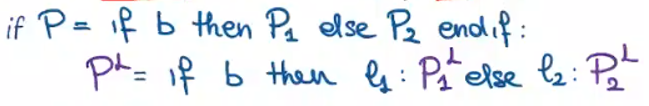 if P = if b then P₁ else P₂ endif :
P^L = if b then l₁ : P₁^L else l₂ : P₂^L